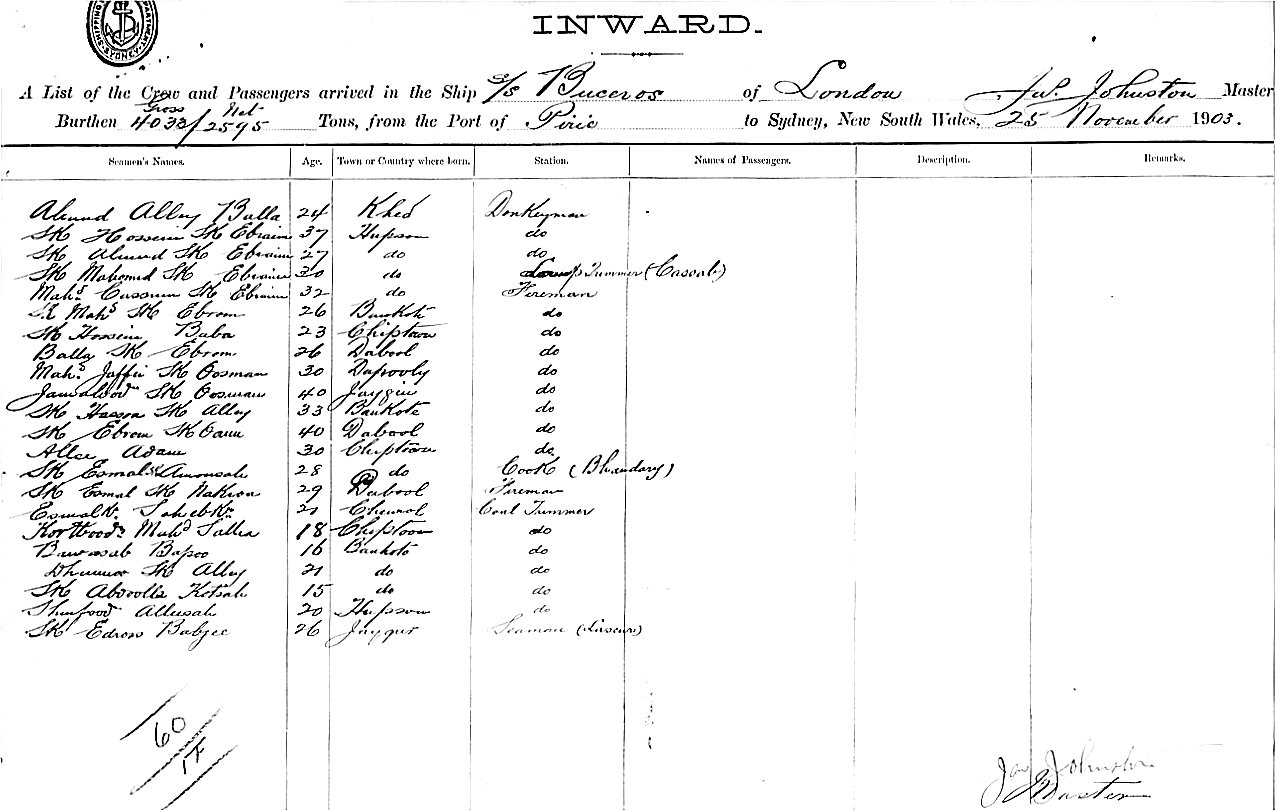 INWARD.
A List of the Crew and Passengers arrived in the Ship S/S Buceros of London Jas. Johnston Master
Gross Net
Burthen 4033/2595 Tons, from the Port of Pirie to Sydney, New South Wales, 25 November 1903.
Seamen's Names. Age. Town or Country where born. Station. Names of Passengers. Description. Remarks.
Ahmud Alley Balla 24 Khed Donkeyman
SK Hossein SK Ebraim 37 Hupson do
SK Ahmud SK Ebraim 27 do do
SK Mahomed SK Ebraim 30 do Lamp Trimmer (Cassab)
Mahd. Cassum SK Ebraim 32 do Fireman
SK Mahd SK Ebrom 26 Bankote do
SK Hossein Baba 23 Chiptoon do
Balla SK Ebrom 26 Dabool do
Mahd. Jaffir SK Oosman 30 Dapooly do
SK Oosman 40 do
SK Hassan SK Alley 33 Bankote do
SK Ebrom SK 40 Dabool do
Allee Adam 30 Chiptoon do
SK Esmal 28 do Cook (Bhandary)
SK Esmal SK 29 Dabool Fireman
21 Coal Trimmer
Mahd 18 Chiptoon do
Bawasab Bapoo 16 Bankote do
SK Alley 21 do do
SK Abdoolla 15 do do
20 Hupson do
SK Edroos 26 Jaygur Seaman (Lascar)
60
17
Jas Johnston
Master